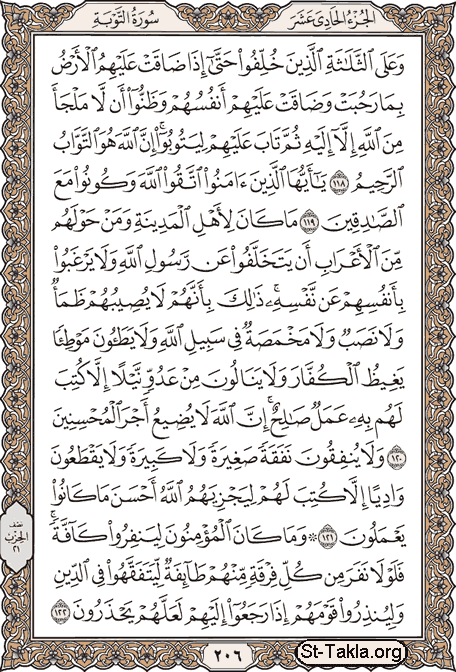 الجزء الحادى عشر
سورة التوبة
وَعَلَى ٱلثَّلَٰثَةِ ٱلَّذِينَ خُلِّفُوا۟ حَتَّىٰٓ إِذَا ضَاقَتْ عَلَيْهِمُ ٱلْأَرْضُ
بِمَا رَحُبَتْ وَضَاقَتْ عَلَيْهِمْ أَنفُسُهُمْ وَظَنُّوٓا۟ أَن لَّا مَلْجَأَ
مِنَ ٱللَّهِ إِلَّآ إِلَيْهِ ثُمَّ تَابَ عَلَيْهِمْ لِيَتُوبُوٓا۟ ۚ إِنَّ ٱللَّهَ هُوَ ٱلتَّوَّابُ
ٱلرَّحِيمُ ١١٨ يَٰٓأَيُّهَا ٱلَّذِينَ ءَامَنُوا۟ ٱتَّقُوا۟ ٱللَّهَ وَكُونُوا۟ مَعَ
ٱلصَّٰدِقِينَ ١١٩ مَا كَانَ لِأَهْلِ ٱلْمَدِينَةِ وَمَنْ حَوْلَهُم
مِّنَ ٱلْأَعْرَابِ أَن يَتَخَلَّفُوا۟ عَن رَّسُولِ ٱللَّهِ وَلَا يَرْغَبُوا۟
بِأَنفُسِهِمْ عَن نَّفْسِهِۦ ۚ ذَٰلِكَ بِأَنَّهُمْ لَا يُصِيبُهُمْ ظَمَأٌ
وَلَا نَصَبٌ وَلَا مَخْمَصَةٌ فِى سَبِيلِ ٱللَّهِ وَلَا يَطَـُٔونَ مَوْطِئًا
يَغِيظُ ٱلْكُفَّارَ وَلَا يَنَالُونَ مِنْ عَدُوٍّ نَّيْلًا إِلَّا كُتِبَ
لَهُم بِهِۦ عَمَلٌ صَٰلِحٌ ۚ إِنَّ ٱللَّهَ لَا يُضِيعُ أَجْرَ ٱلْمُحْسِنِينَ
١٢٠ وَلَا يُنفِقُونَ نَفَقَةً صَغِيرَةً وَلَا كَبِيرَةً وَلَا يَقْطَعُونَ
وَادِيًا إِلَّا كُتِبَ لَهُمْ لِيَجْزِيَهُمُ ٱللَّهُ أَحْسَنَ مَا كَانُوا۟
يَعْمَلُونَ ١٢١ ۞ وَمَا كَانَ ٱلْمُؤْمِنُونَ لِيَنفِرُوا۟ كَآفَّةً ۚ
فَلَوْلَا نَفَرَ مِن كُلِّ فِرْقَةٍ مِّنْهُمْ طَآئِفَةٌ لِّيَتَفَقَّهُوا۟ فِى ٱلدِّينِ
وَلِيُنذِرُوا۟ قَوْمَهُمْ إِذَا رَجَعُوٓا۟ إِلَيْهِمْ لَعَلَّهُمْ يَحْذَرُونَ ١٢٢
نصف
الحزب
٢١
٢٠٦
St-Takla.org